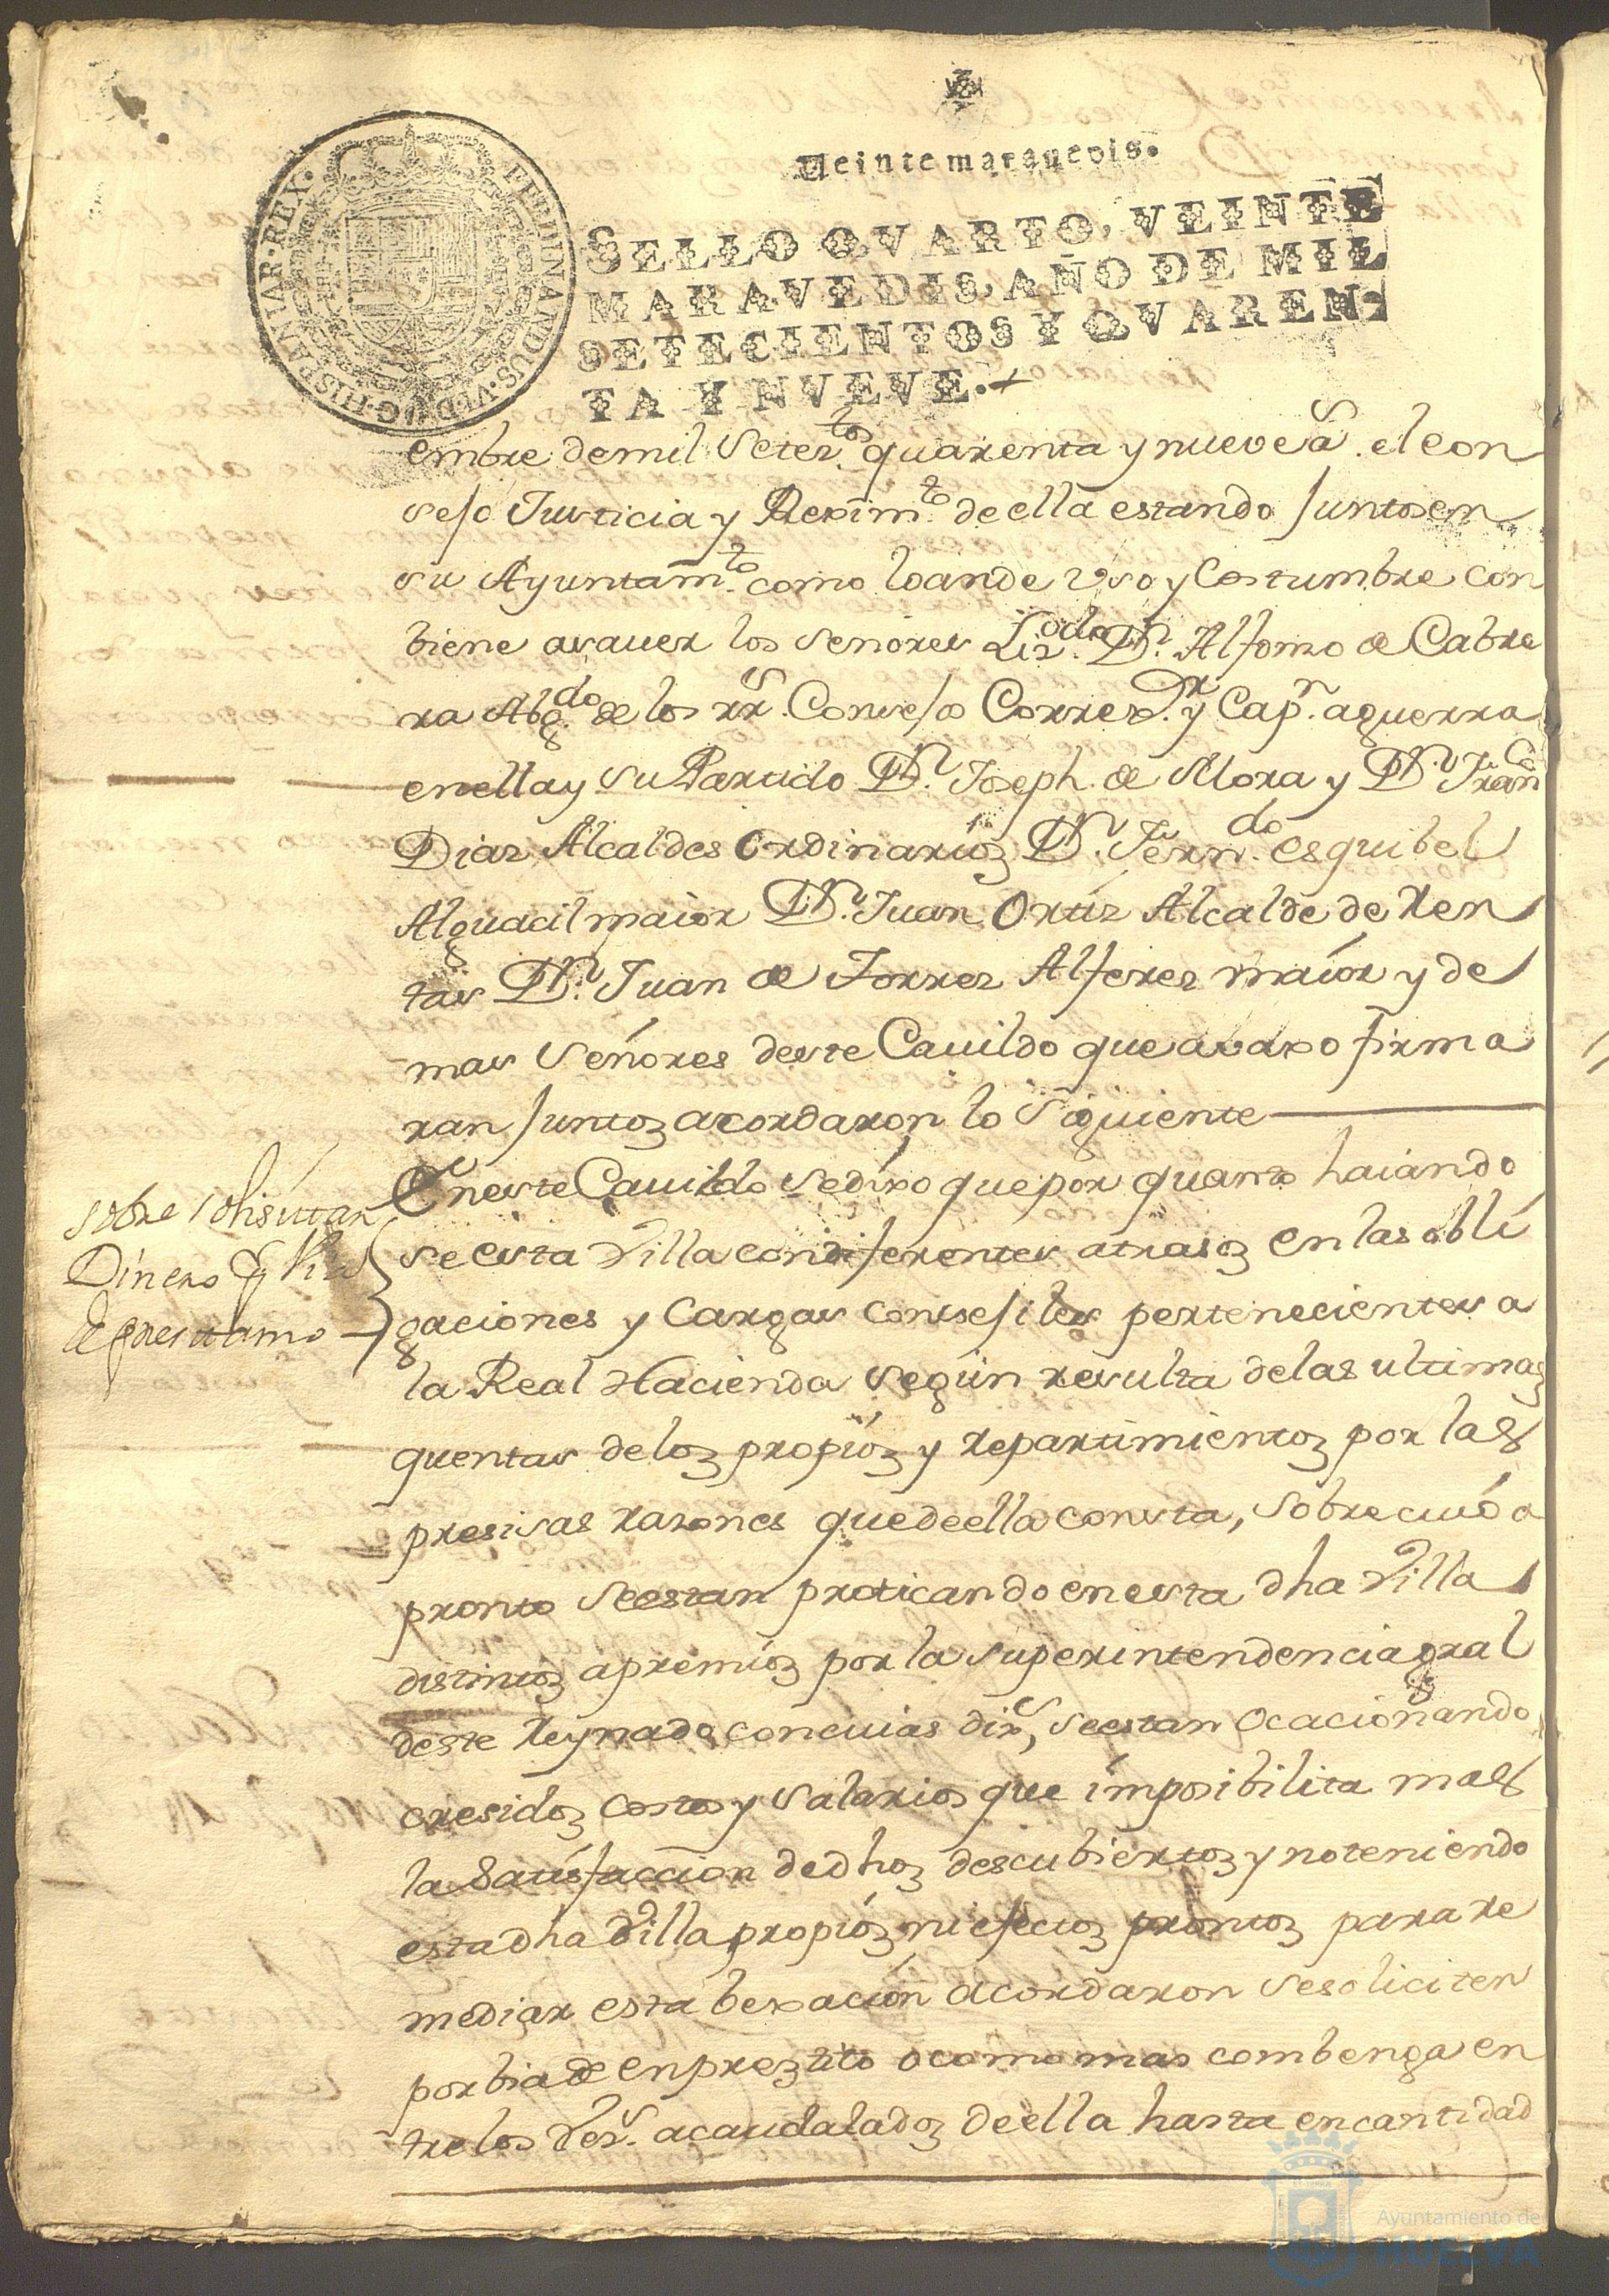 Veinte maravedis.
FERDINANDUS·VI·D·G·HISPANIAR·REX·
SELLO QVARTO, VEINTE
MARAVEDIS, AÑO DE MIL
SETECIENTOS Y QVAREN-
TA Y NVEVE.
embre de mil Setez.tos quarenta y nueve a.s el con
sejo Justicia y Reximto de ella estando Juntos en
su Ayuntamto como lo an de Uso y Costumbre con
biene a saver los Señores Lizdo Dn Alfonso de Cabre
ra Abgdo de los rrs Consejos Corredor y Capn aguerra
en ella y Su Partido Dn Joseph de Mora y Dn Franco
Diaz Alcaldes Ordinarios Dn Ferndo esquibel
Alguacil maior Dn Juan Ortiz Alcalde de Ren
tas Dn Juan de Torres Alferez maior y de
mas Señores deste Cavildo que avaxo firma
ran Juntos acordaron lo Siguiente
Sobre Solisitar
Dinero
de prestamo
En este Cavildo se dixo que por quanto haiando
se esta Villa con diferentes atrasos en las obli
gaciones y Cargas consejiles pertenecientes a
la Real Hacienda Segun resulta de las ultimas
quentas de los propios y repartimientos por las
presisas razones que de ella consta, Sobre cuio a
pronto se estan praticando en esta dha Villa
distintos apremios por la Superintendencia gral
deste Reynado con cuias dixs, se estan Ocacionando
cresidos costos y Salarios que imposibilita mas
la Satisfaccion de dhos descubiertos y no teniendo
esta dha Villa propios ni efectos prontos para re
mediar esta bexacion acordaron se soliciten
por bia de enprezto o como mas combenga en
tre los Vezs acaudalados de ella hasta en cantidad
Ayuntamiento de
HUELVA